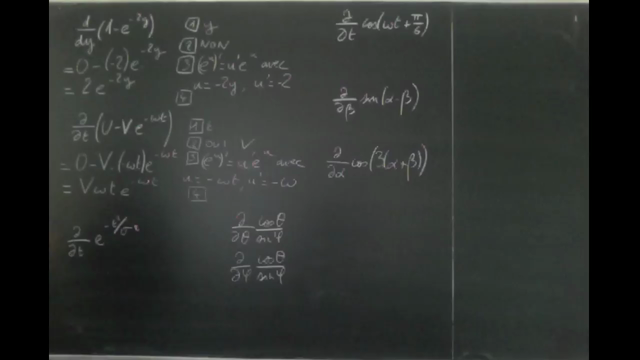 d/dy (1-e^-2y)
= 0-(-2)e^-2y
= 2e^-2y
1 y
2 NON
3 (e^u)'=u'e^u avec
u=-2y, u'=-2
4
∂/∂t (U-Ve^-ωt)
= 0-V.(ωt)e^-ωt
= Vωt e^-ωt
1 t
2 OUI V
3 (e^u)'=u'e^u avec
u=-ωt, u'=-ω
4
∂/∂t e^-t²/σ²
∂/∂θ cosθ/sinφ
∂/∂φ cosθ/sinφ
∂/∂t cos(ωt+π/6)
∂/∂β sin(α-β)
∂/∂α cos(3(α+β))